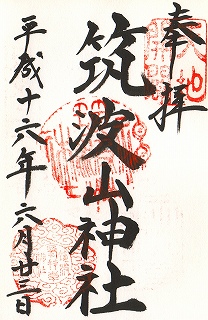 奉拝
筑波山神社
平成十六年六月廿二日